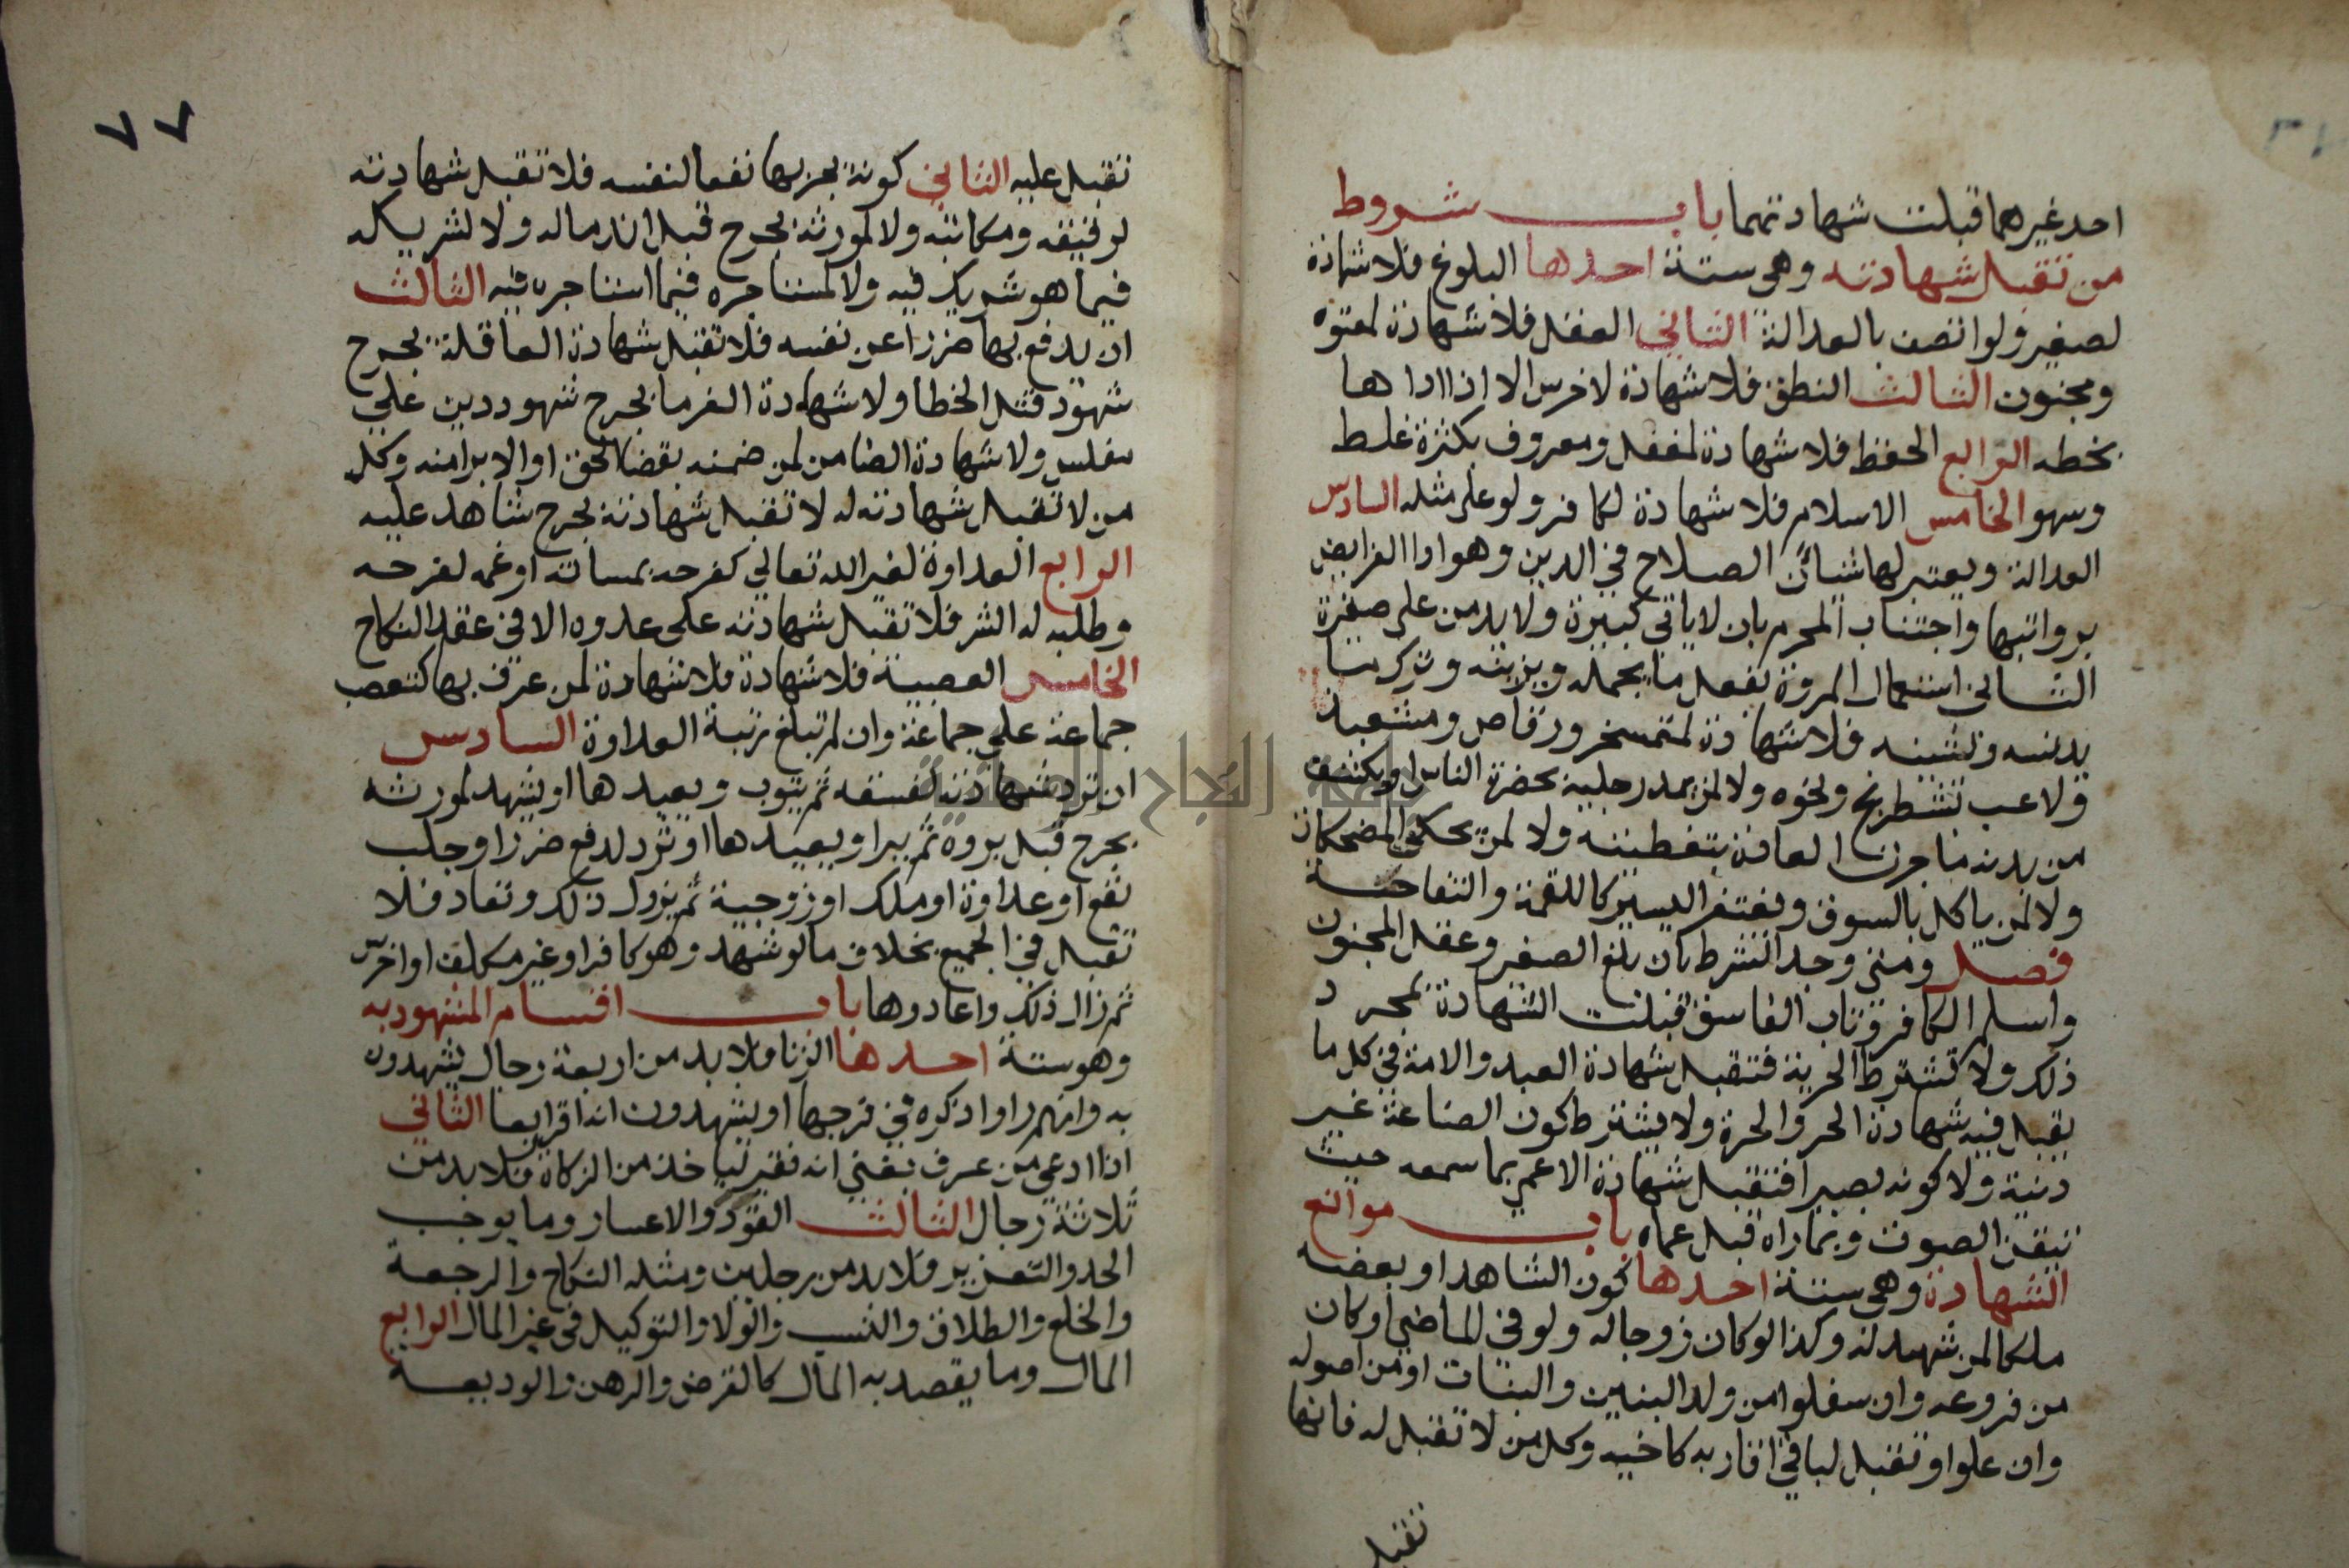 احد غيرهما قبلت شهادتهما باب شروط
من تقبل شهادته وهي ستة احدها البلوغ فلا شهادة
لصغير ولو اتصف بالعدالة الثاني العقل فلا شهادة لمعتوه
ومجنون الثالث النطق فلا شهادة لاخرس الا اذا اداها
بخطه الرابع الحفظ فلا شهادة لمغفل ومعروف بكثرة غلط
وسهو الخامس الاسلام فلا شهادة لكافر ولو على مثله السادس
العدالة ويعتبر لها شيأن الصلاح في الدين وهو ادا الفرايض
برواتبها واجتناب المحرم بان لا ياتي كبيرة ولا يدمن على صغيرة
الثاني استعمال المروة بفعل ما يجمله ويزينه وترك ما
يدنسه ويشينه فلا شهادة لمتمسخر ورقاص ومشعبذ
ولاعب بشطرنج ونحوه ولا لمن يمد رجليه بحضرة الناس او يكشف
من بدنه ما جرت العادة بتغطيته ولا لمن يحكي المضحكات
ولا لمن ياكل بالسوق ويغتفر اليسير كاللقمة والتفاحة
فصل ومتى وجد الشرط بان بلغ الصغير وعقل المجنون
واسلم الكافر وتاب الفاسق قبلت الشهادة بمجرد
ذلك ولا تشترط الحرية فتقبل شهادة العبد والامة في كل ما
يقبل فيه شهادة الحر والحرة ولا يشترط كون الصناعة غير
دنية ولا كونه بصيرا فتقبل شهادة الاعمى بما سمعه حيث
تيقن الصوت وبما راه قبل عماه باب موانع
الشهادة وهي ستة احدها كون الشاهد او بعضه
ملكا لمن شهد له وكذا لو كان زوجا له ولو في الماضي او كان
من فروعه وان سفلوا من ولد البنين والبنات او من اصوله
وان علوا وتقبل لباقي اقاربه كاخيه وكل من لا تقبل له فانها
تقبل
٧٧
تقبل عليه الثاني كونه يجر بها نفعا لنفسه فلا تقبل شهادته
لرقيقه ومكاتبه ولا لمورثه بجرح قبل اندماله ولا لشريكه
فيما هو شريك فيه ولا لمستاجره فيما استاجره فيه الثالث
ان يدفع بها ضررا عن نفسه فلا تقبل شهادة العاقلة بجرح
شهود قتل الخطا ولا شهادة الغرما بجرح شهود دين علي
مفلس ولا شهادة الضامن لمن ضمنه بقضا الحق او الابرا منه وكل
من لا تقبل شهادته له لا تقبل شهادته بجرح شاهد عليه
الرابع العداوة لغير الله تعالي كفرحه بمساته او غمه لفرحه
وطلبه له الشر فلا تقبل شهادته على عدوه الا في عقد النكاح
الخامس العصبية فلا شهادة فلا شهادة لمن عرف بها كتعصب
جماعة علي جماعة وان لم تبلغ رتبة العداوة السادس
ان ترد شهادته لفسقه ثم يتوب ويعيدها او يشهد لمورثه
بجرح قبل بروه ثم يبرا ويعيدها او ترد لدفع ضرر او جلب
نفع او عداوة او ملك او زوجية ثم يزول ذلك وتعاد فلا
تقبل في الجميع بخلاف ما لو شهد وهو كافر او غير مكلف او اخرس
ثم زال ذلك واعادوها باب اقسام المشهود به
وهو ستة احدها الزنا فلا بد من اربعة رجال يشهدون
به وانهم راوا ذكره في فرجها او يشهدون انه اقر اربعا الثاني
اذا ادعى من عرف بغنى انه فقير لياخذ من الزكاة فلا بد من
ثلاثة رجال الثالث القود والاعسار وما يوجب
الحد والتعزير فلا بد من رجلين ومثله النكاح والرجعة
والخلع والطلاق والنسب والولا والتوكيل في غير المال الرابع
المال وما يقصد به المال كالقرض والرهن والوديعة
جامعة النجاح الوطنية